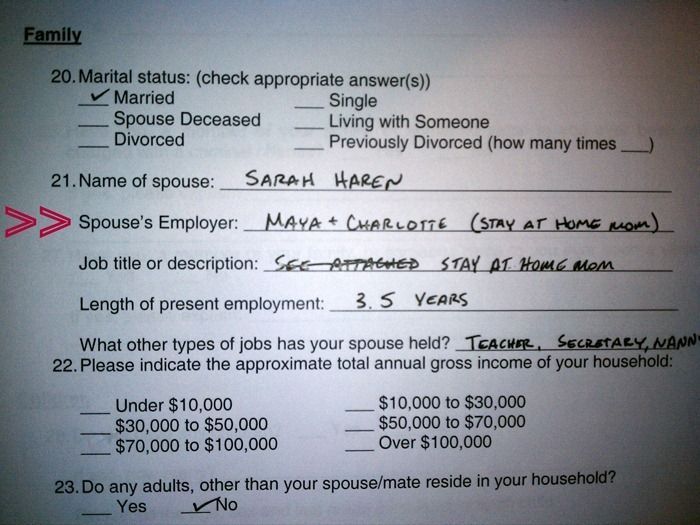 Family
20. Marital status: (check appropriate answer(s))
✓ Married ___ Single
___ Spouse Deceased ___ Living with Someone
___ Divorced ___ Previously Divorced (how many times ___)
21. Name of spouse: SARAH HAREN
>> Spouse's Employer: MAYA + CHARLOTTE (STAY AT HOME MOM)
Job title or description: SEE ATTACHED STAY AT HOME MOM
Length of present employment: 3.5 YEARS
What other types of jobs has your spouse held? TEACHER, SECRETARY, NANNY
22. Please indicate the approximate total annual gross income of your household:
___ Under $10,000 ___ $10,000 to $30,000
___ $30,000 to $50,000 ___ $50,000 to $70,000
___ $70,000 to $100,000 ___ Over $100,000
23. Do any adults, other than your spouse/mate reside in your household?
___ Yes ✓ No